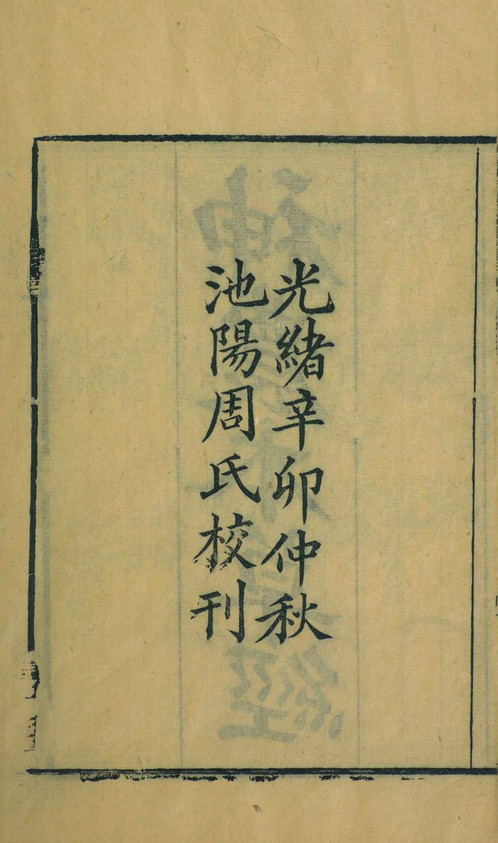 光緒辛卯仲秋
池陽周氏校刊